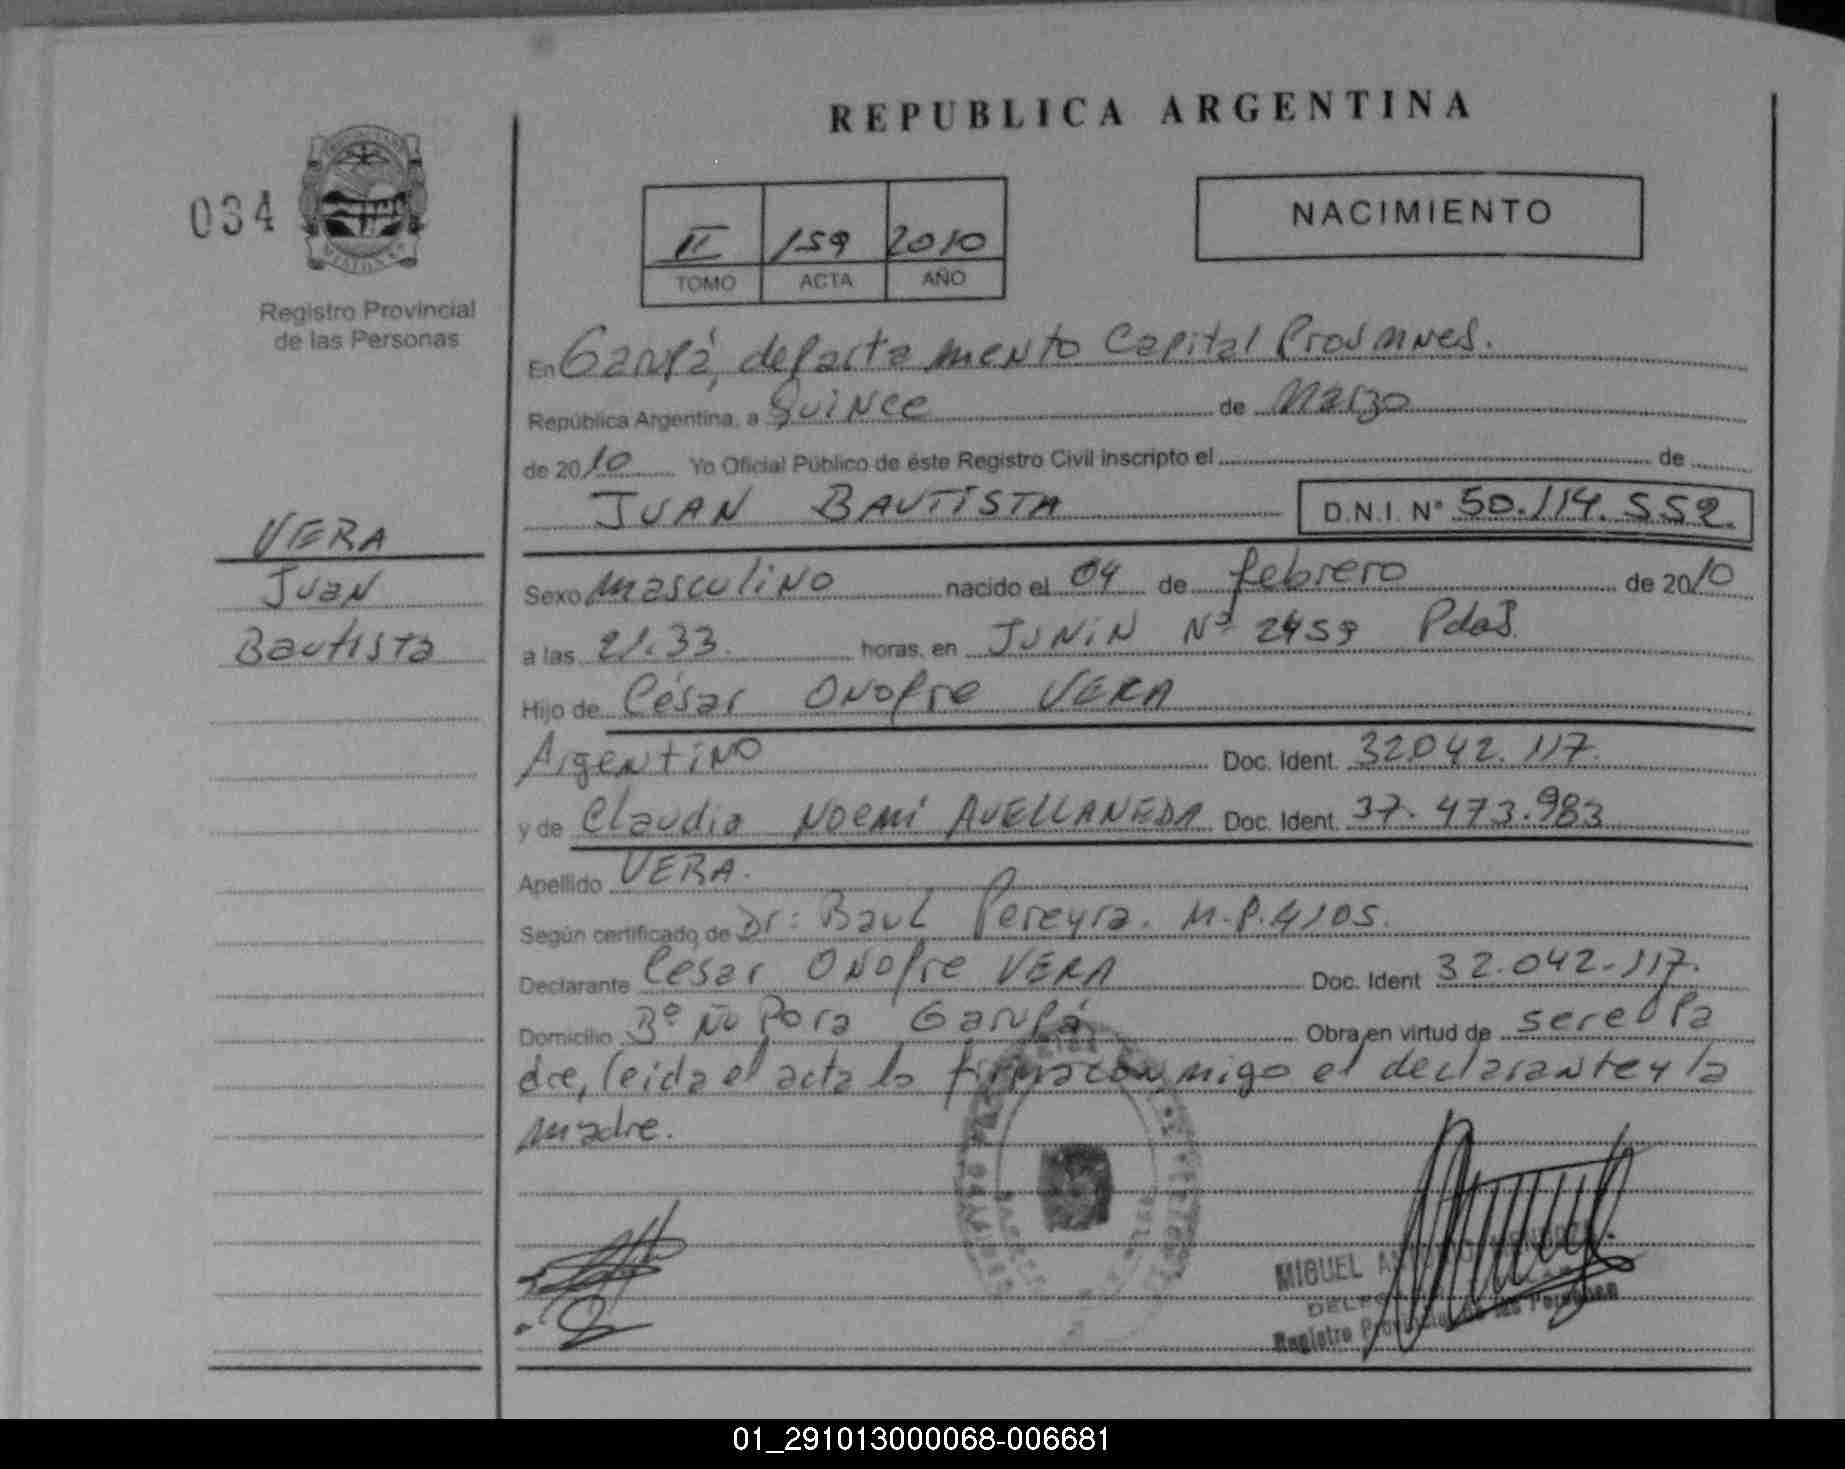 REPUBLICA ARGENTINA
034
NACIMIENTO
II 159 2010
TOMO ACTA AÑO
Registro Provincial
de las Personas
En Garupá, departamento Capital Prov Mnes.
República Argentina, a Quince de Marzo
de 2010 Yo Oficial Público de éste Registro Civil inscripto el de
JUAN BAUTISTA D.N.I. N° 50.114.552.
VERA
Juan
Bautista
Sexo masculino nacido el 04 de febrero de 2010
a las 21.33. horas, en JUNIN Nº 2459 Pdas
Hijo de César Onofre VERA
Argentino Doc. Ident. 32042.117.
y de Claudia Noemí AVELLANEDA Doc. Ident. 37.473.983
Apellido VERA.
Según certificado de Dr: Pereyra. M.P.4105.
Declarante Cesar Onofre VERA Doc. Ident 32.042.117.
Domicilio Bº Ñu Pora Garupá Obra en virtud de ser el Pa
dre, leida el acta la firma conmigo el declarante y la
madre.
MIGUEL
Registro Provincial de las Personas
01_291013000068-006681